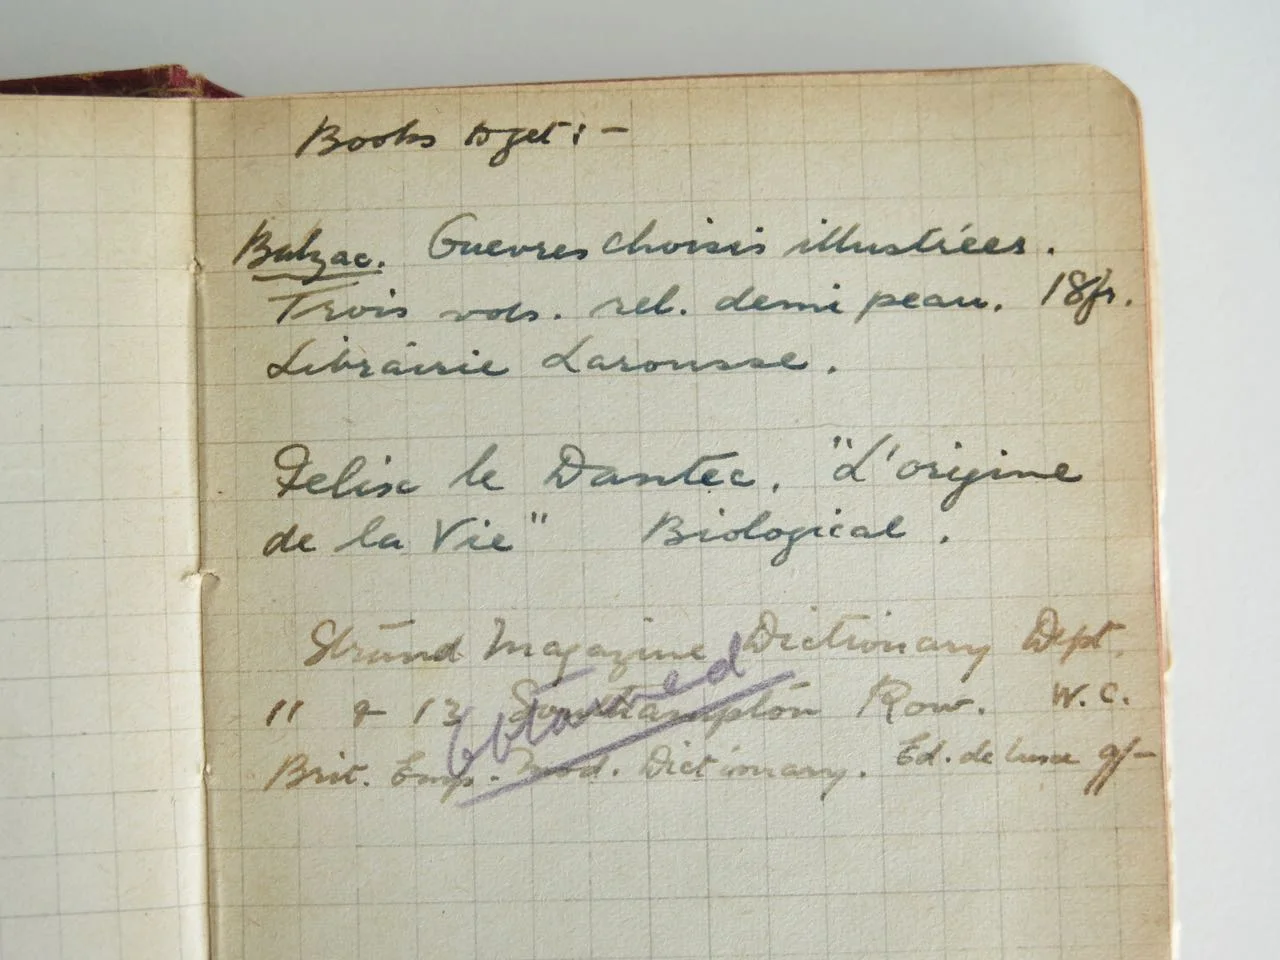 Books to get :-
Balzac. Oeuvres choisis illustrées.
Trois vols. rel. demi peau. 18fr.
Librairie Larousse.
Felix le Dantec, "L'origine
de la Vie" Biological.
Strand Magazine Dictionary Dept.
11 & 12 Southampton Row. W.C.
Obtained
Brit. Emp. Mod. Dictionary. Ed. de luxe 9/-